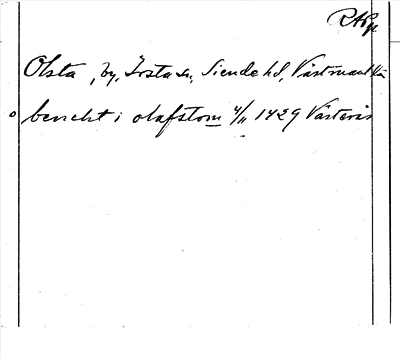 RAp
Olsta, by, Irsta sn, Siende hd, Västmanl. län
benekt i olafstom 4/11 1429 Västerås